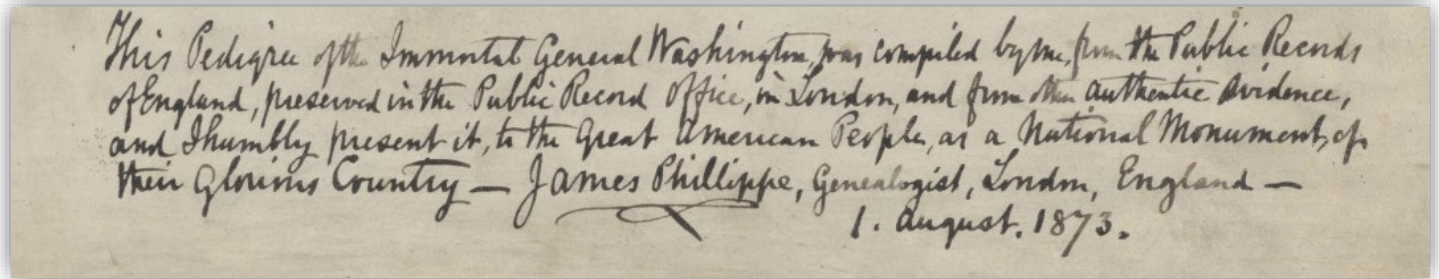 This Pedigree of the Immortal General Washington, was compiled by me, from the Public Records
of England, preserved in the Public Record Office, in London, and from other authentic evidence,
and I humbly present it, to the Great American People, as a National Monument, of
their Glorious Country — James Phillippe, Genealogist, London, England —
1. August. 1873.